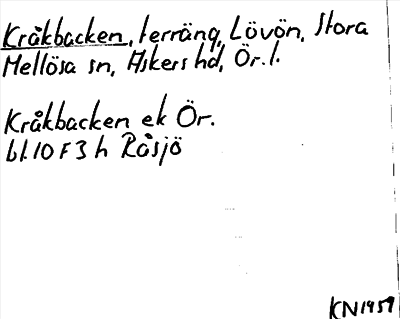 Kråkbacken, terräng, Lövön, Stora
Mellösa sn, Askers hd, Ör. l.
Kråkbacken ek Ör.
bl. 10 F 3 h Råsjö
KN 1959